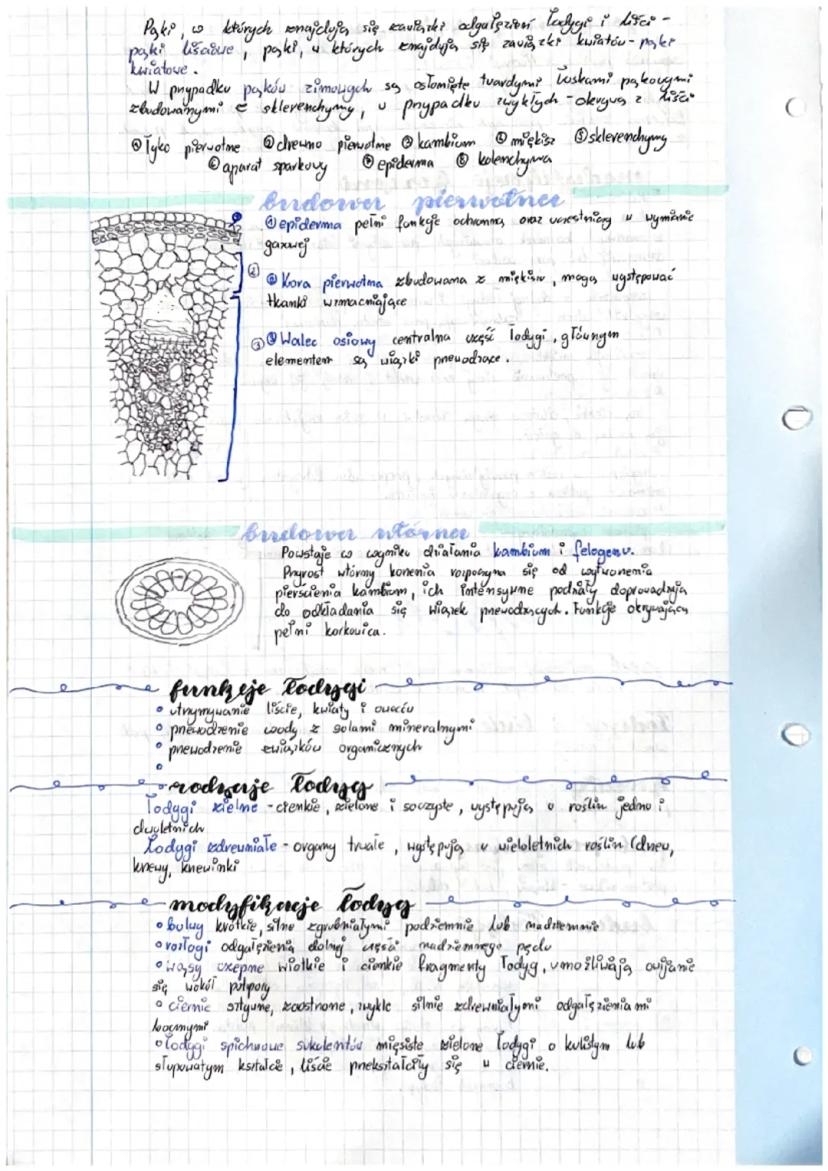 Pąki, w których znajdują się zawiązki odgałęzień łodygi i liści -
pąki liściowe, pąki, w których znajdują się zawiązki kwiatów - pąki
kwiatowe.
W przypadku pąków zimowych są osłonięte twardymi łuskami pąkowymi
zbudowanymi z sklerenchymy, w przypadku zwykłych - okrywa z liści
① łyko pierwotne ② drewno pierwotne ③ kambium ④ miękisz ⑤ sklerenchyma
⑥ aparat szparkowy ⑦ epiderma ⑧ kolenchyma
budowa pierwotna
① epiderma pełni funkcje ochronną oraz uczestniczy w wymianie
gazowej
② ② Kora pierwotna zbudowana z miękiszu, mogą występować
tkanki wzmacniające
③ ③ Walec osiowy centralna część łodygi, głównym
elementem są wiązki przewodzące.
budowa wtórna
Powstaje w wyniku działania kambium i felogenu.
Przyrost wtórny korzenia rozpoczyna się od wytworzenia
pierścienia kambium, ich intensywne podziały doprowadzają
do odkładania się wiązek przewodzących. Funkcje okrywającą
pełni korkowica.
funkcje łodygi
• utrzymywanie liście, kwiaty i owoców
• przewodzenie wody z solami mineralnymi
• przewodzenie związków organicznych
•
rodzaje łodyg
Łodygi zielne - cienkie, zielone i soczyste, występują u roślin jedno i
dwuletnich
Łodygi zdrewniałe - organy trwałe, występują u wieloletnich roślin (drzew,
krzewy, krzewinki
modyfikacje łodyg
• bulwy krótkie, silne zgrubniałymi podziemnie lub nadziemnie
• rozłogi odgałęzienia dolnej części nadziemnego pędu
• wąsy czepne wiotkie i cienkie fragmenty łodyg, umożliwiają owijanie
się wokół podpory
• ciernie sztywne, zaostrzone, zwykle silnie zdrewniałymi odgałęzieniami
bocznymi
• łodygi spichrzowe sukulentów mięsiste zielone łodygi o kulistym lub
słupowatym kształcie, liście przekształciły się w ciernie.